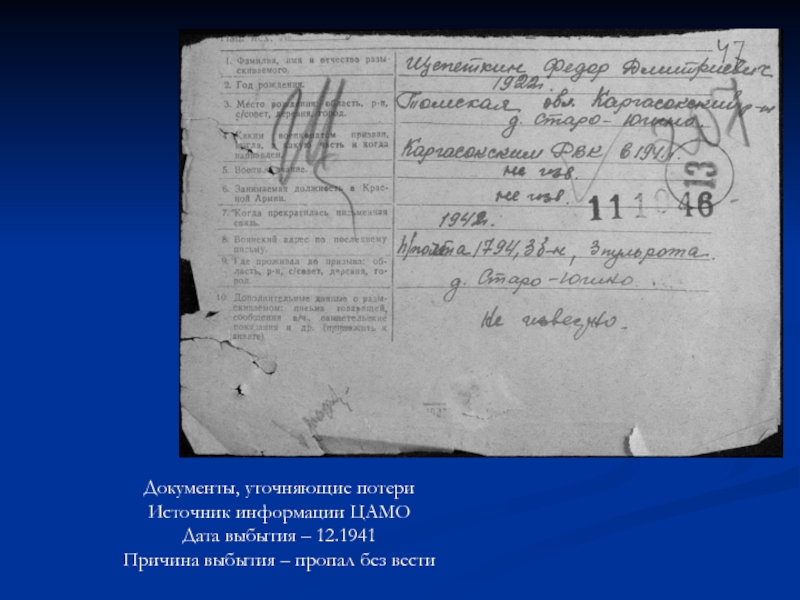 47
1. Фамилия, имя и отчество разыскиваемого.
Щепеткин Федор Дмитриевич
2. Год рождения.
1922г.
3. Место рождения: область, р-н, с/совет, деревня, город.
Томская обл. Каргасокский р-н
д. Старо-Югино
4. Каким военкоматом призван, когда, в какую часть и когда направлен.
Каргасокским РВК в 194 г.
5. Воен. звание.
не изв.
6. Занимаемая должность в Красной Армии.
не изв.
11 10 46
13
7. Когда прекратилась письменная связь.
1942г.
8. Воинский адрес по последнему письму.
п/почта 1794, 3 б-н, 3 пульрота.
9. Где проживал до призыва: область, р-н, с/совет, деревня, город.
д. Старо-Югино
10. Дополнительные данные о разыскиваемом: письма товарищей, сообщения в/ч., свидетельские показания и др. (приложить к анкете).
Не изведно.
Документы, уточняющис потери
Источник информации ЦАМО
Дата выбытия – 12.1941
Причина выбытия – пропал без вести